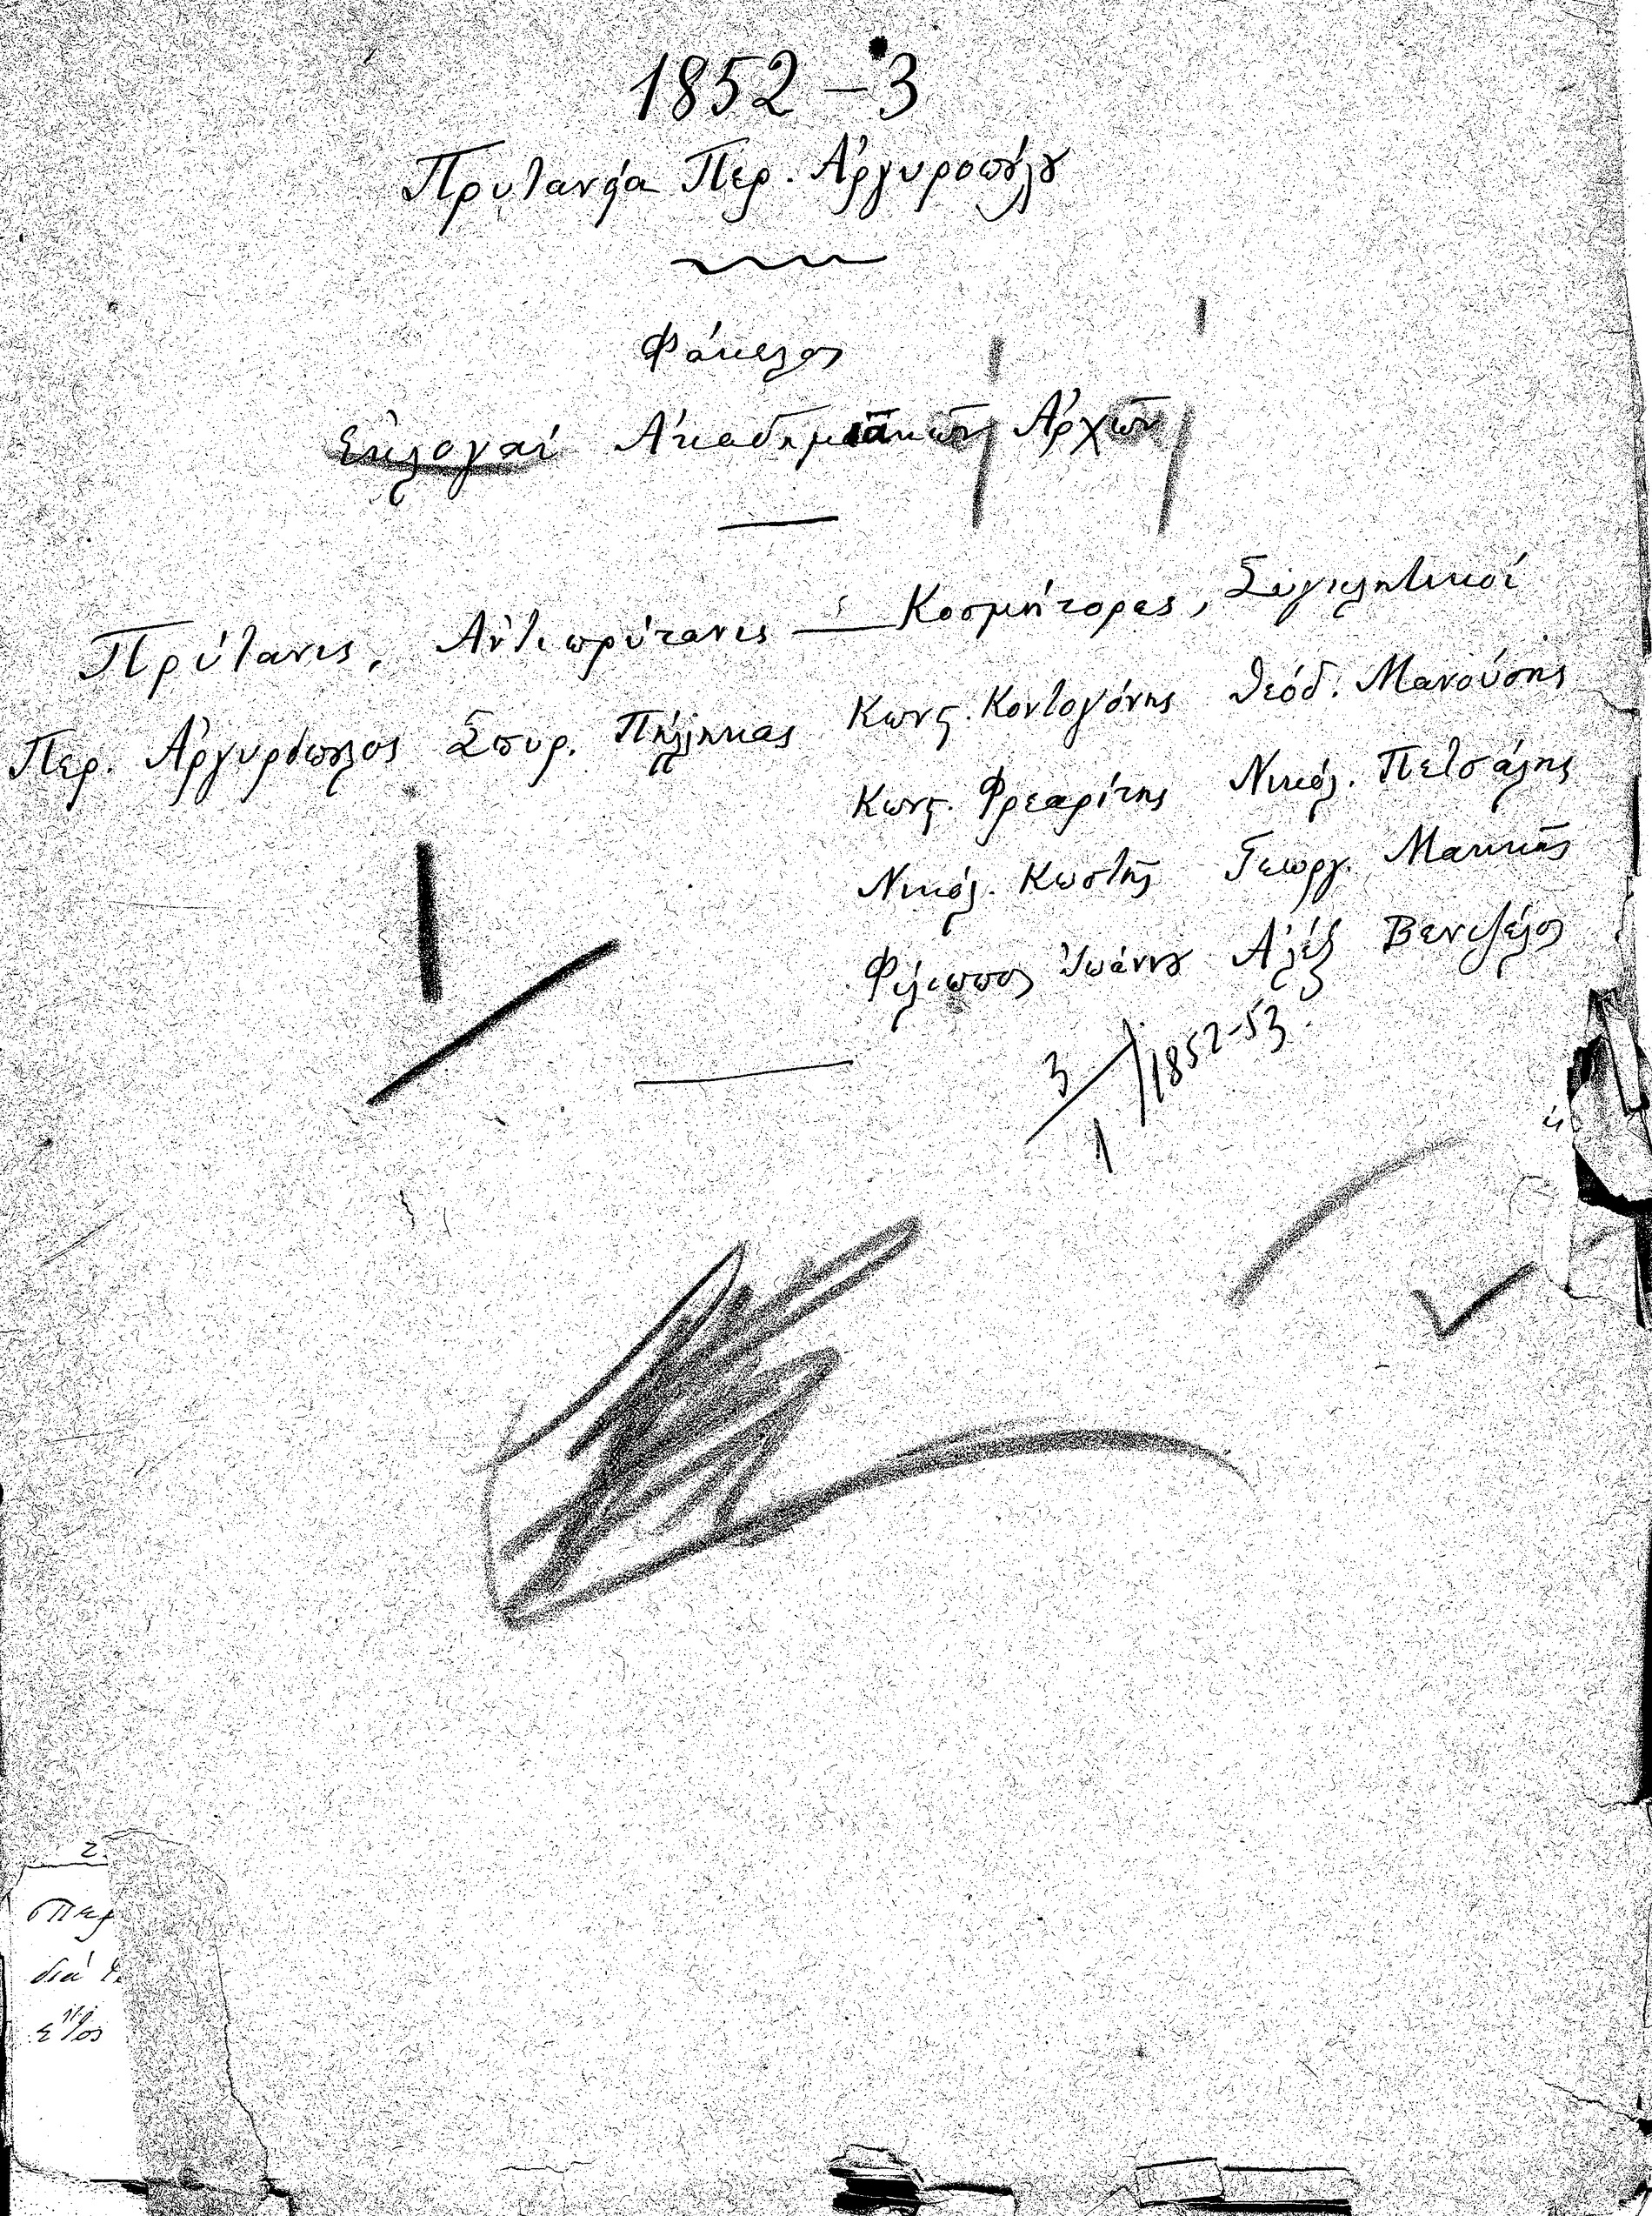 1852-3
Πρυτανεία Περ. Ἀργυροπούλου
Φάκελος
Ἐκλογαί Ἀκαδημαϊκῶν Ἀρχῶν
Πρύτανις, Ἀντιπρύτανις — Κοσμήτορες, Συγκλητικοί
Περ. Ἀργυρόπουλος Σπυρ. Πήλληκας Κωνς. Κοντογόνης Θεόδ. Μανούσης
Κωνς. Φρεαρίτης Νικόλ. Πετσάλης
Νικόλ. Κωστῆς Γεωργ. Μακκᾶς
Φίλιππος Ἰωάννου Ἀλέξ Βενιζέλος
3/1/1852-53.
2.
Περ
διά
ἔτος